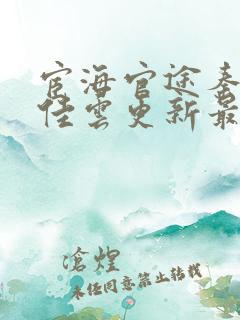 宦海官途秦
佳雲更新最
滄煌
未任同意禁止转载